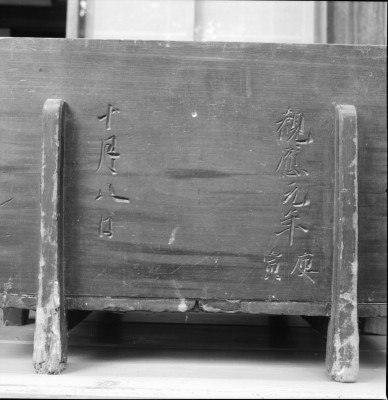 觀應元年庚寅
十月八日